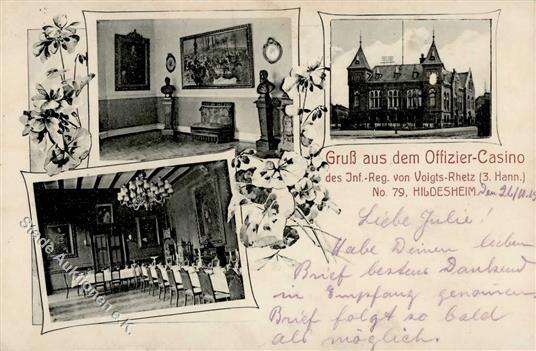 Gruß aus dem Offizier-Casino
des Inf.-Reg. von Voigts-Rhetz (3. Hann.)
No. 79, HILDESHEIM, den 26/10.
Liebe Julie!
Habe Deinen lieben
Brief bestens Dankend
in Empfang genommen
Brief folgt so bald
als möglich.